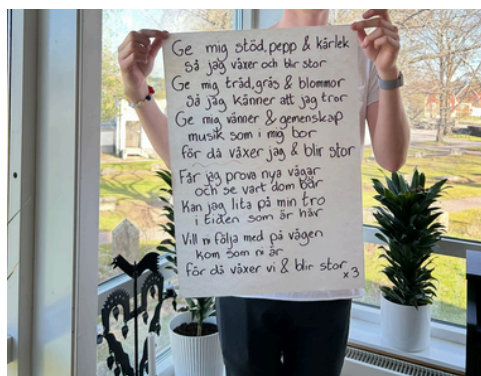 Ge mig stöd, pepp & kärlek
Så jag växer och blir stor
Ge mig träd, gräs & blommor
Så jag känner att jag tror
Ge mig vänner & gemenskap
musik som i mig bor
för då växer jag & blir stor
Får jag prova nya vägar
och se vart dom bär
Kan jag lita på min tro
i tiden som är här
Vill ni följa med på vägen
kom som ni är
för då växer vi & blir stor x3